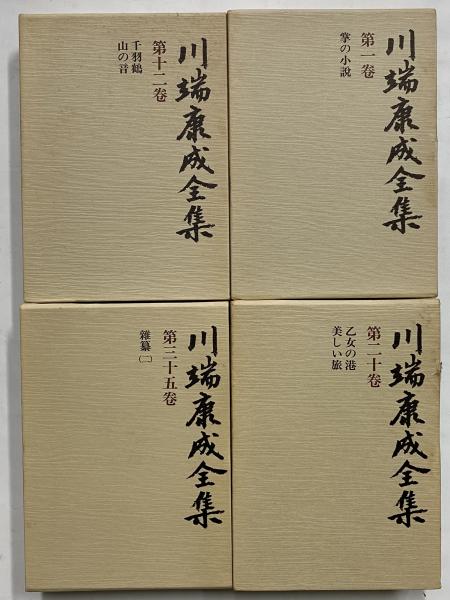 川端康成全集
第十二巻
千羽鶴
山の音
川端康成全集
第一巻
掌の小説
川端康成全集
第三十五巻
雑纂(二)
川端康成全集
第二十巻
乙女の港
美しい旅